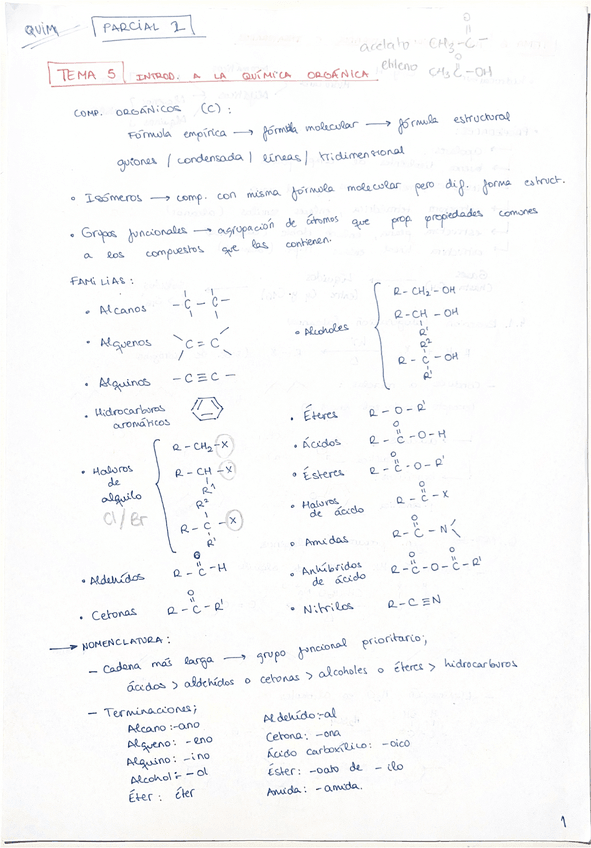 QUIM
PARCIAL 1
acetato CH₃-C-
O
etileno CH₃C-OH
O
TEMA 5 INTROD. A LA QUÍMICA ORGÁNICA
COMP. ORGÁNICOS (C):
Fórmula empírica → fórmula molecular → fórmula estructural
guiones / condensada / líneas / tridimensional
• Isómeros → comp. con misma fórmula molecular pero dif. forma estruct.
• Grupos funcionales → agrupación de átomos que prop. propiedades comunes
a los compuestos que las contienen.
FAMILIAS:
• Alcanos -C-C-
• Alquenos C=C
• Alquinos -C≡C-
• Hidrocarburos
aromáticos
• Haluros
de
alquilo
Cl/Br
R-CH₂-X
R-CH-X
R¹
R²
R-C-X
R¹
• Aldehídos R-C-H
O
• Cetonas R-C-R'
O
• Alcoholes
R-CH₂-OH
R-CH-OH
R'
R²
R-C-OH
R'
• Éteres R-O-R'
• Ácidos R-C-O-H
O
• Ésteres R-C-O-R'
O
• Haluros
de ácido R-C-X
O
• Amidas R-C-N
O
• Anhíbridos
de ácido R-C-O-C-R'
O O
• Nitrilos R-C≡N
→ NOMENCLATURA:
- Cadena más larga → grupo funcional prioritario;
ácidos > aldehídos o cetonas > alcoholes o éteres > hidrocarburos
- Terminaciones;
Alcano:-ano
Alqueno: -eno
Alquino: -ino
Alcohol:- ol
Éter: éter
Aldehído:-al
Cetona: -ona
Ácido carboxílico: -oico
Éster: -oato de -ilo
Amida: -amida.
1